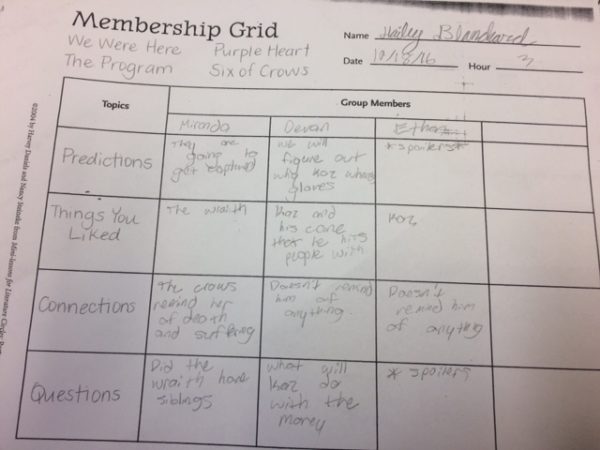 Membership Grid
We Were Here Purple Heart
The Program Six of Crows
Name Hailey
Date 10/18/16 Hour 3
Topics
Group Members
Miranda Devan Ethan
Predictions
They are
going to
get captured
we will
figure out
why Kaz whears
gloves
*spoilers*
Things You
Liked
The wraith
Kaz and
his cane
that he hits
people with
Kaz
Connections
The crows
remind her
of death
and suffering
Doesn't remind
him of
anything
Doesn't
remind him
of anything
Questions
Did the
wraith have
siblings
what will
Kaz do
with the
money
* spoilers
©2004 by Harvey Daniels and Nancy Steineke from Mini-lessons for Literature Circles